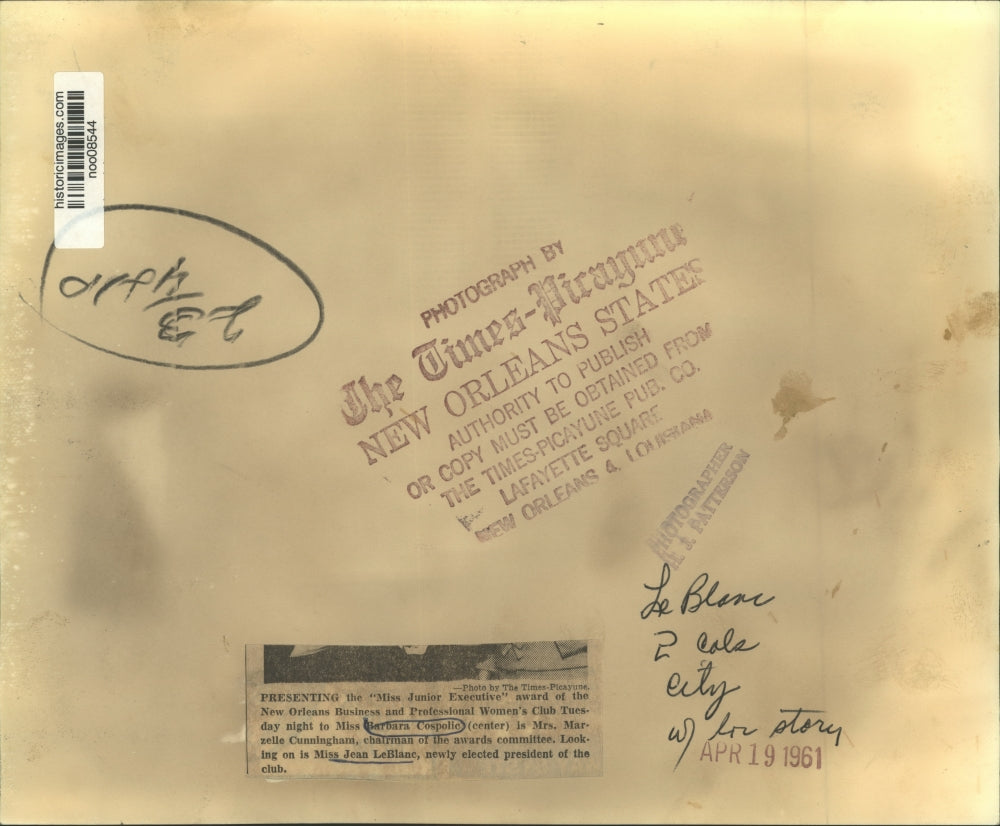 historicimages.com
noo08544
PHOTOGRAPH BY
The Times-Picayune
NEW ORLEANS STATES
AUTHORITY TO PUBLISH
OR COPY MUST BE OBTAINED FROM
THE TIMES-PICAYUNE PUB. CO.
LAFAYETTE SQUARE
NEW ORLEANS 4, LOUISIANA
PHOTOGRAPHER
H. J. PATTERSON
Le Blanc
2 cols
city
w/ lor story
APR 19 1961
—Photo by The Times-Picayune.
PRESENTING the "Miss Junior Executive" award of the
New Orleans Business and Professional Women's Club Tues-
day night to Miss Barbara Cospolic (center) is Mrs. Mar-
zelle Cunningham, chairman of the awards committee. Look-
ing on is Miss Jean LeBlanc, newly elected president of the
club.